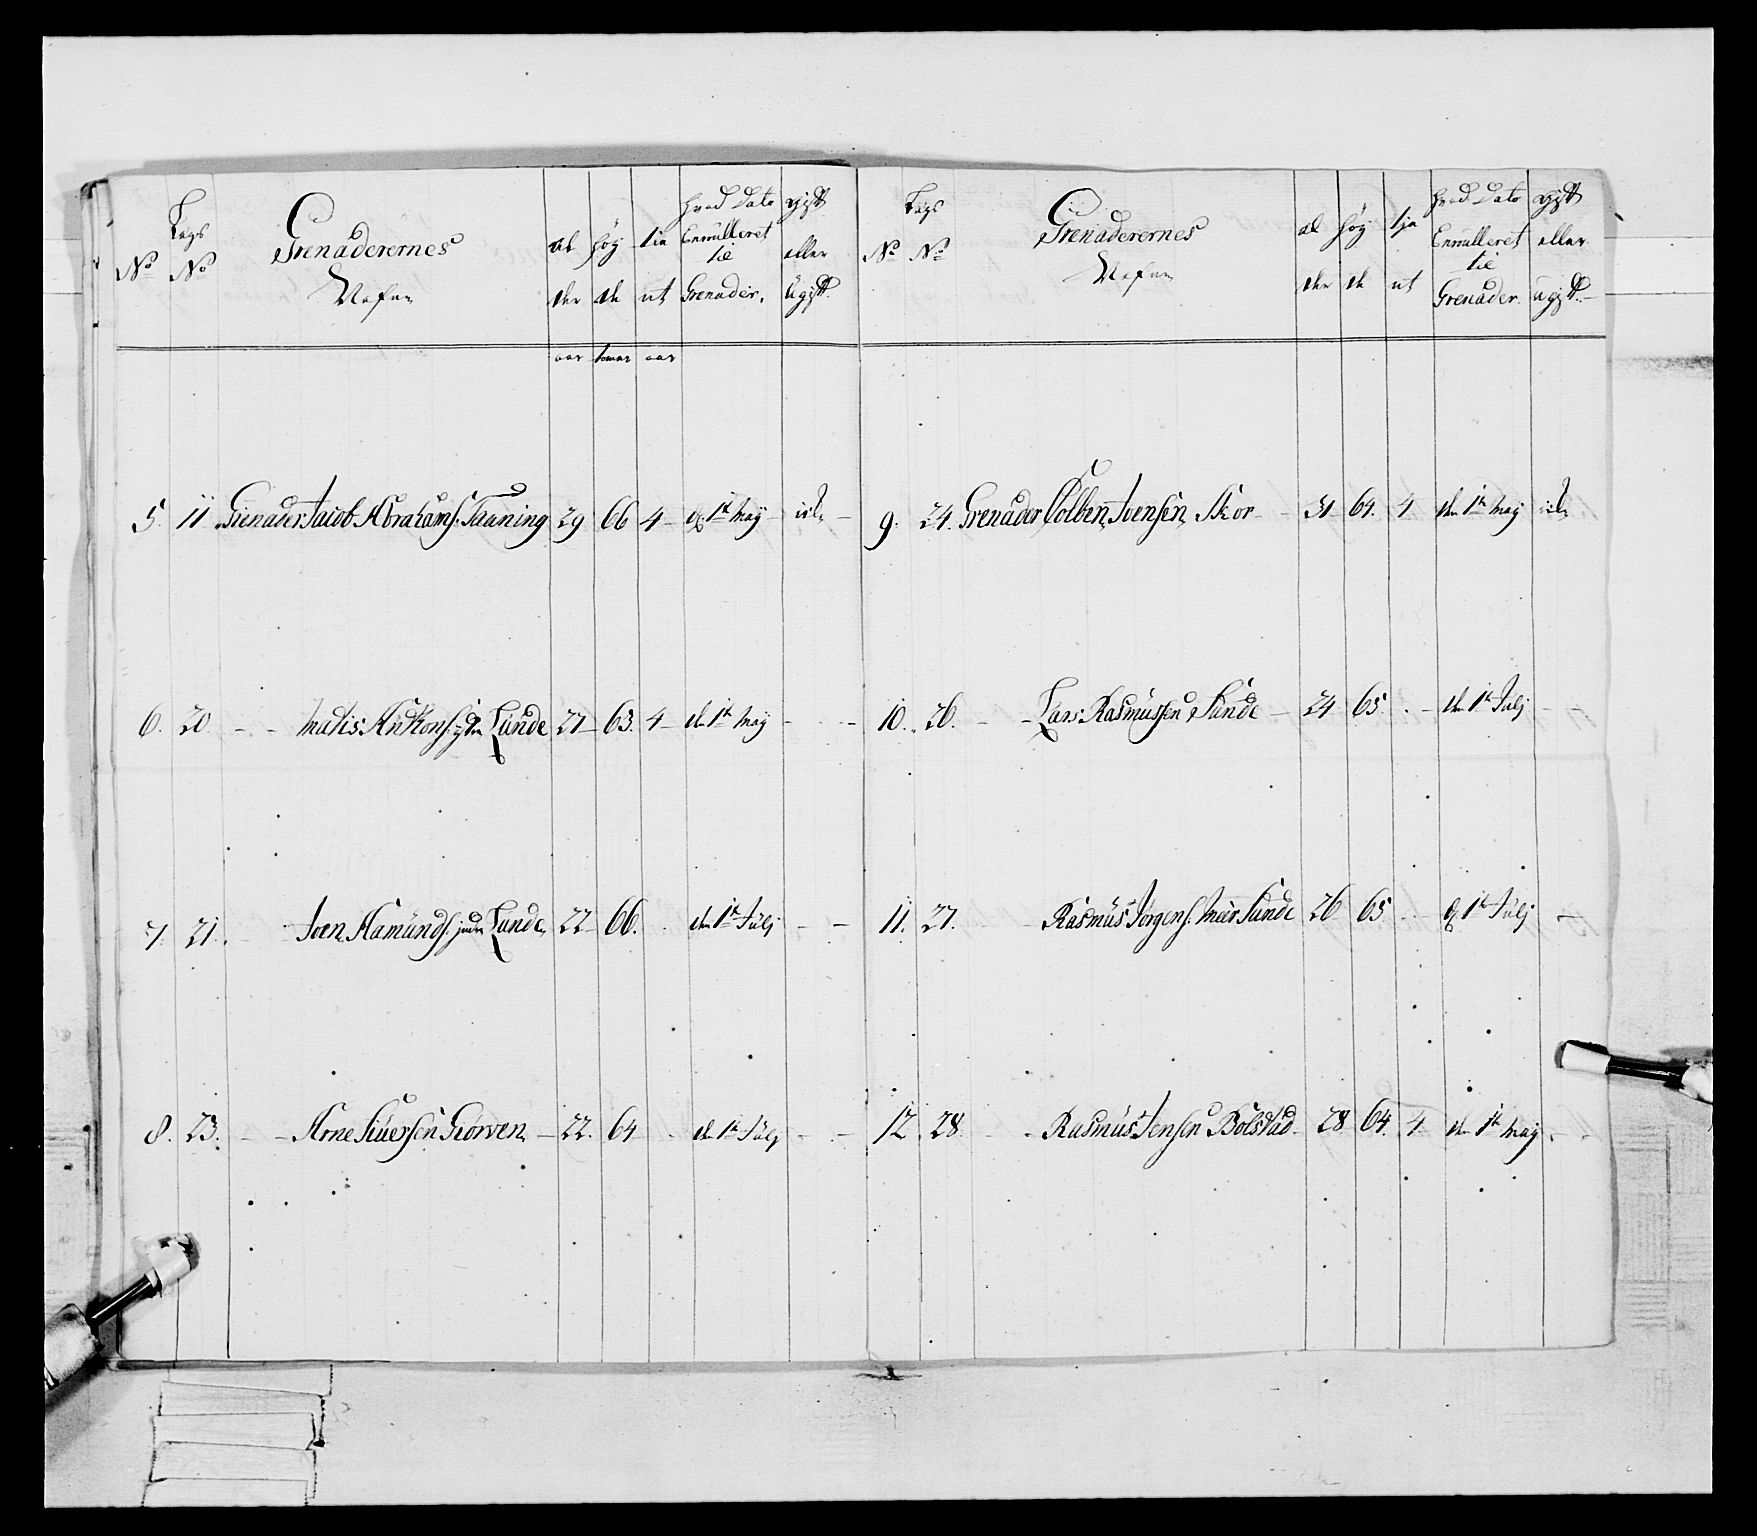 No Lægs No Grenaderernes Nafne al der höy de tie nt hvad Dato Enrulleret til Grenader. gift eller ugift.
aar tomer aar
5. 11 Grenader Jacob Abrahams. Taaning 29 66 4 d. 1te May
6. 20. Matis Andvons. Lunde 27 63. 4 den 1te May
7. 21. Joen Aamunds. Lunde 22 66. den 1te Julj
8. 23. Arne Siversen Giørven 22. 64 den 1te Julj
No Lægs No Grenaderernes Nafne al der höy de tje nt hvad Dato Enrulleret til Grenader. gift eller ugift.
9. 24. Grenader Colben Joensen Skor 31 64. 4 den 1te May
10. 26. Lars Rasmussen Sunde 24 65. den 1te Julj
11. 27. Rasmus Jørgens. Sunde 26 65 d. 1te Julj
12. 28 Rasmus Jensen Bolstad 28 64. 4 den 1te May